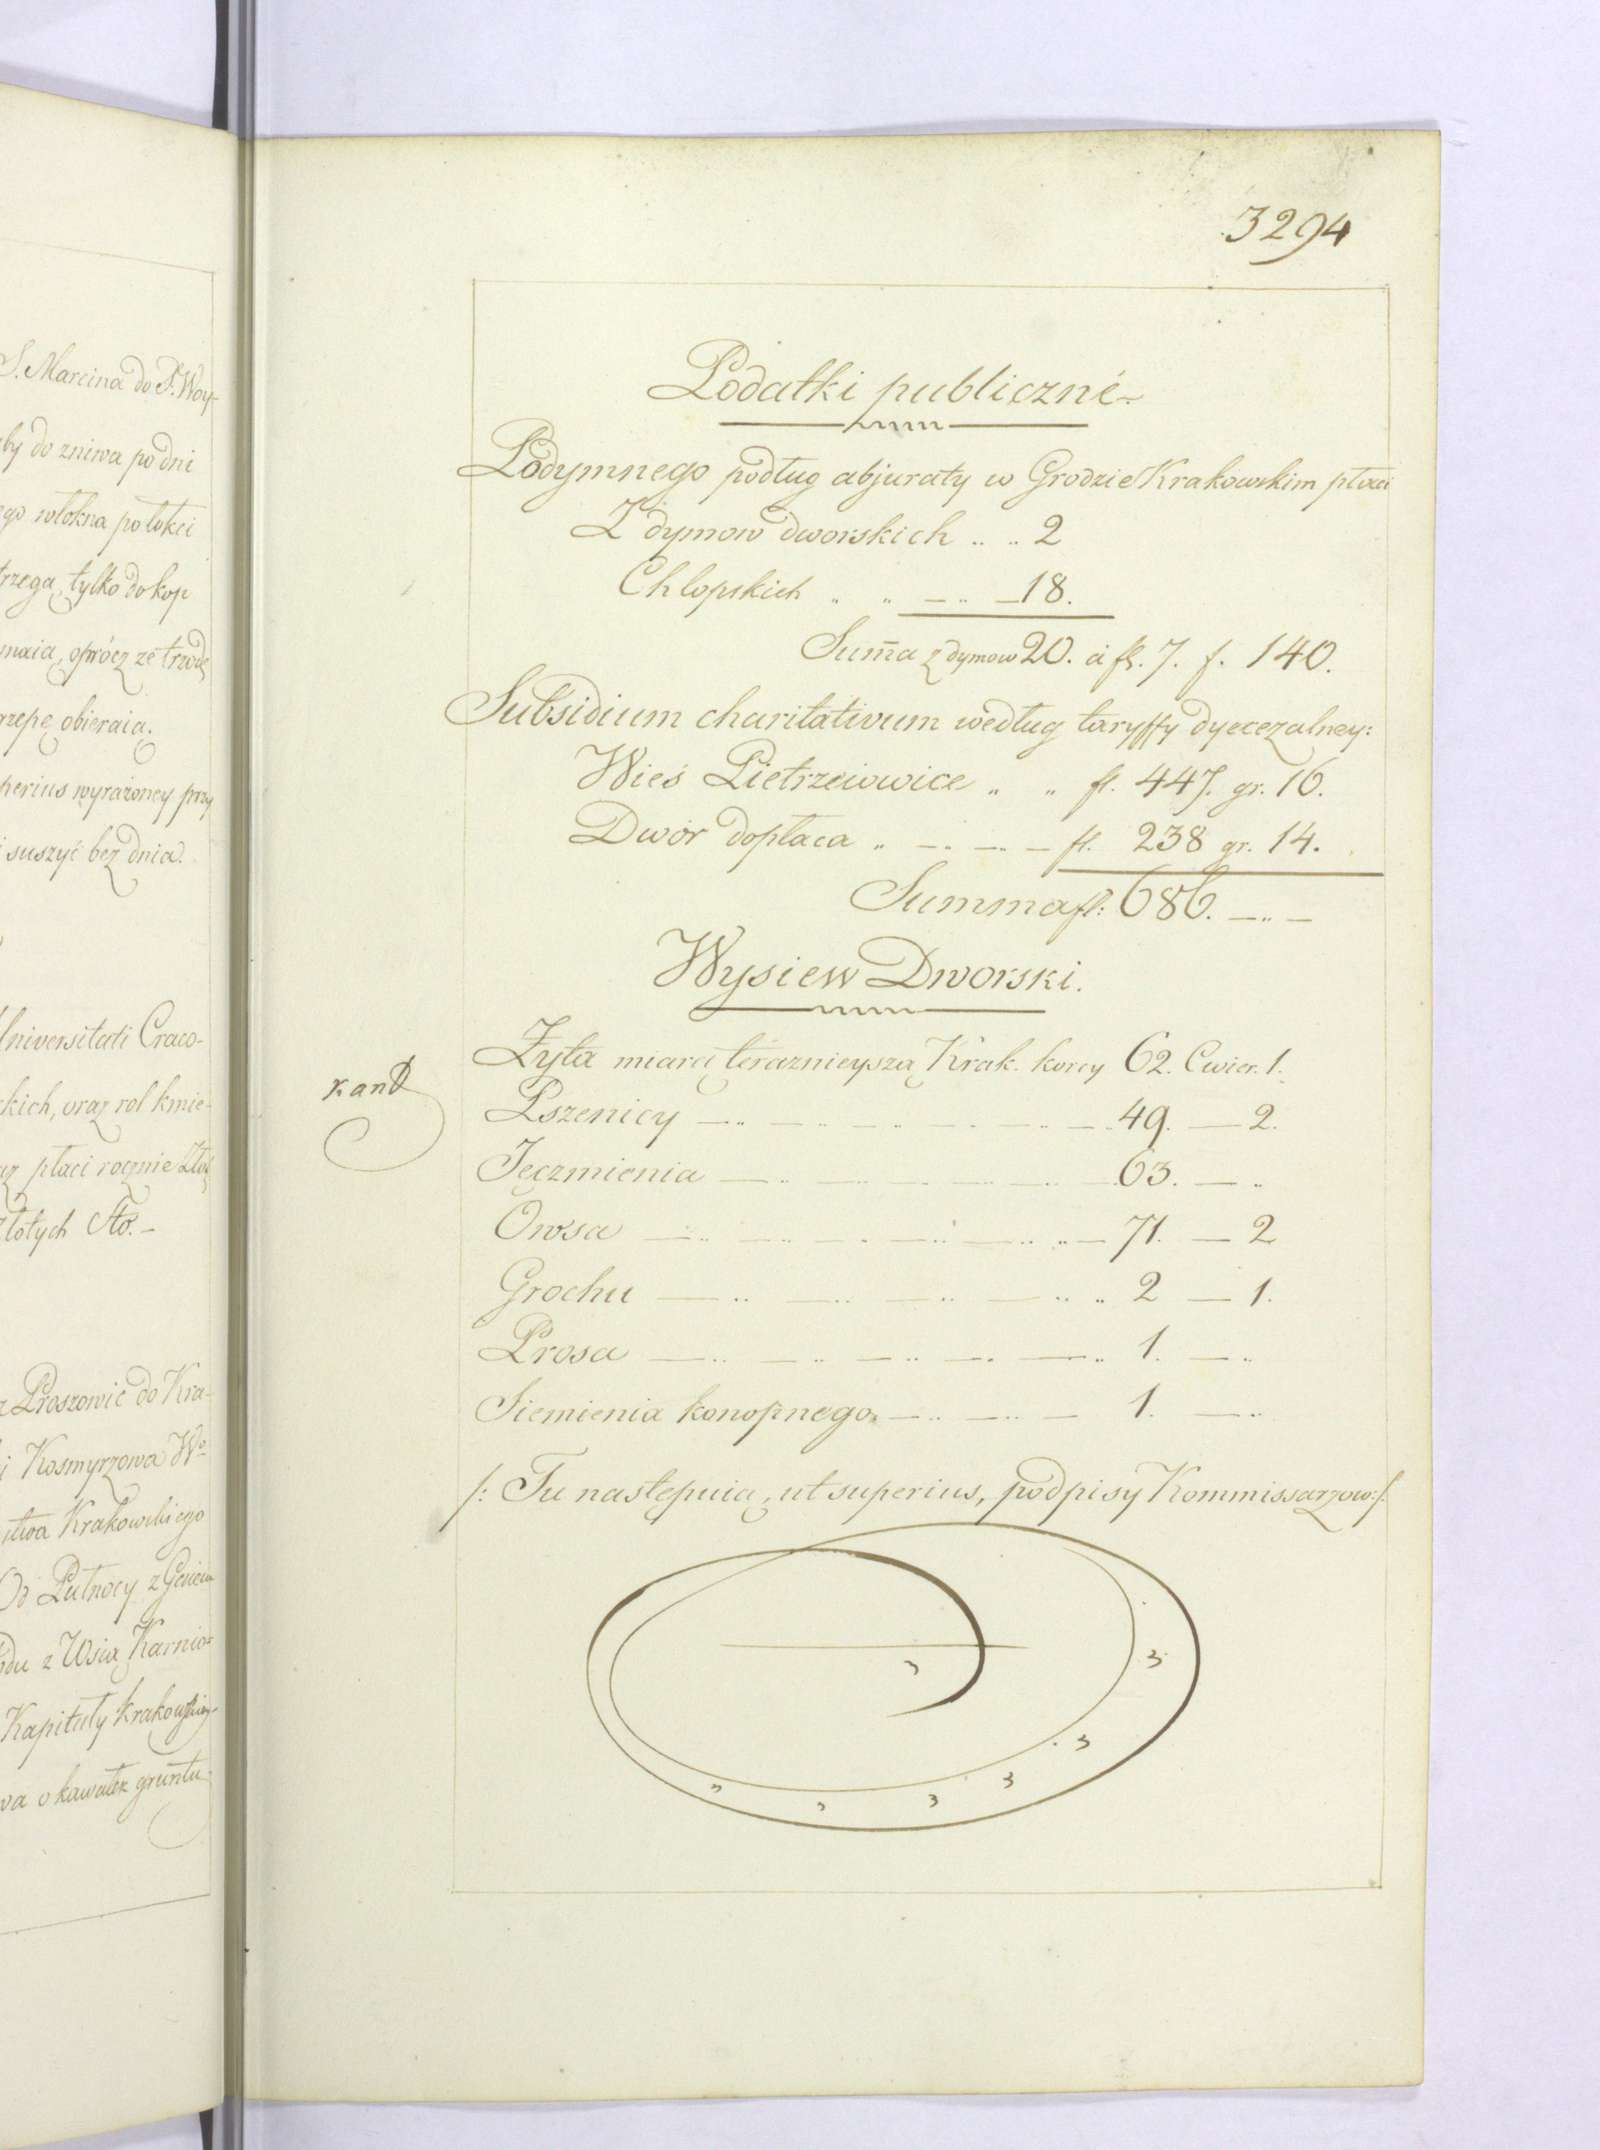 S. Marcina do S. Woy-
by do zniwa po dni
go włokna po łokci
trzega, tylko do kop
maia, oprócz że trzodę
rzepę obieraią.
perius wyrażoney przy
suszyć bez dnia.
Universitati Craco-
ckich, oraz rol kmie-
płaci rocznie Złot
złotych Sto.-
z Proszowic do Kra-
i Kosmyrzowa
stwa Krakowskiego
Od Pułnocy z
du z Wsią Karnio-
Kapituły krakowskiey
wa o kawałek gruntu
3294
Podatki publiczne
Podymnego podług abjuraty w Grodzie Krakowskim płaci
Z dymow dworskich .. .. 2
Chlopskich .. .. — .. — 18.
Sum̄a z dymow 20. à fl. 7. f. 140.
Subsidium charitativum według taryffy dyecezalney:
Wieś Pietrzeiowice .. .. fl. 447. gr. 16.
Dwór dopłaca .. — .. — .. — fl. 238 gr. 14.
Summa fl: 686. — .. —
Wysiew Dworski.
Żyta miarą teraznieyszą Krak. korcy 62. Cwier. 1.
kand
Pszenicy — .. — .. — .. — .. — .. — 49. — 2.
Jęczmienia — .. — .. — .. — .. — 63. — ..
Owsa — .. — .. — .. — .. — .. — 71. — 2
Grochu — .. — .. — .. — .. .. 2 — 1.
Prosa — .. — .. — .. — .. — .. 1. — ..
Siemienia konopnego. — .. — .. — 1. — ..
/: Tu nastepuią, ut superius, podpisy Kommissarzow :/